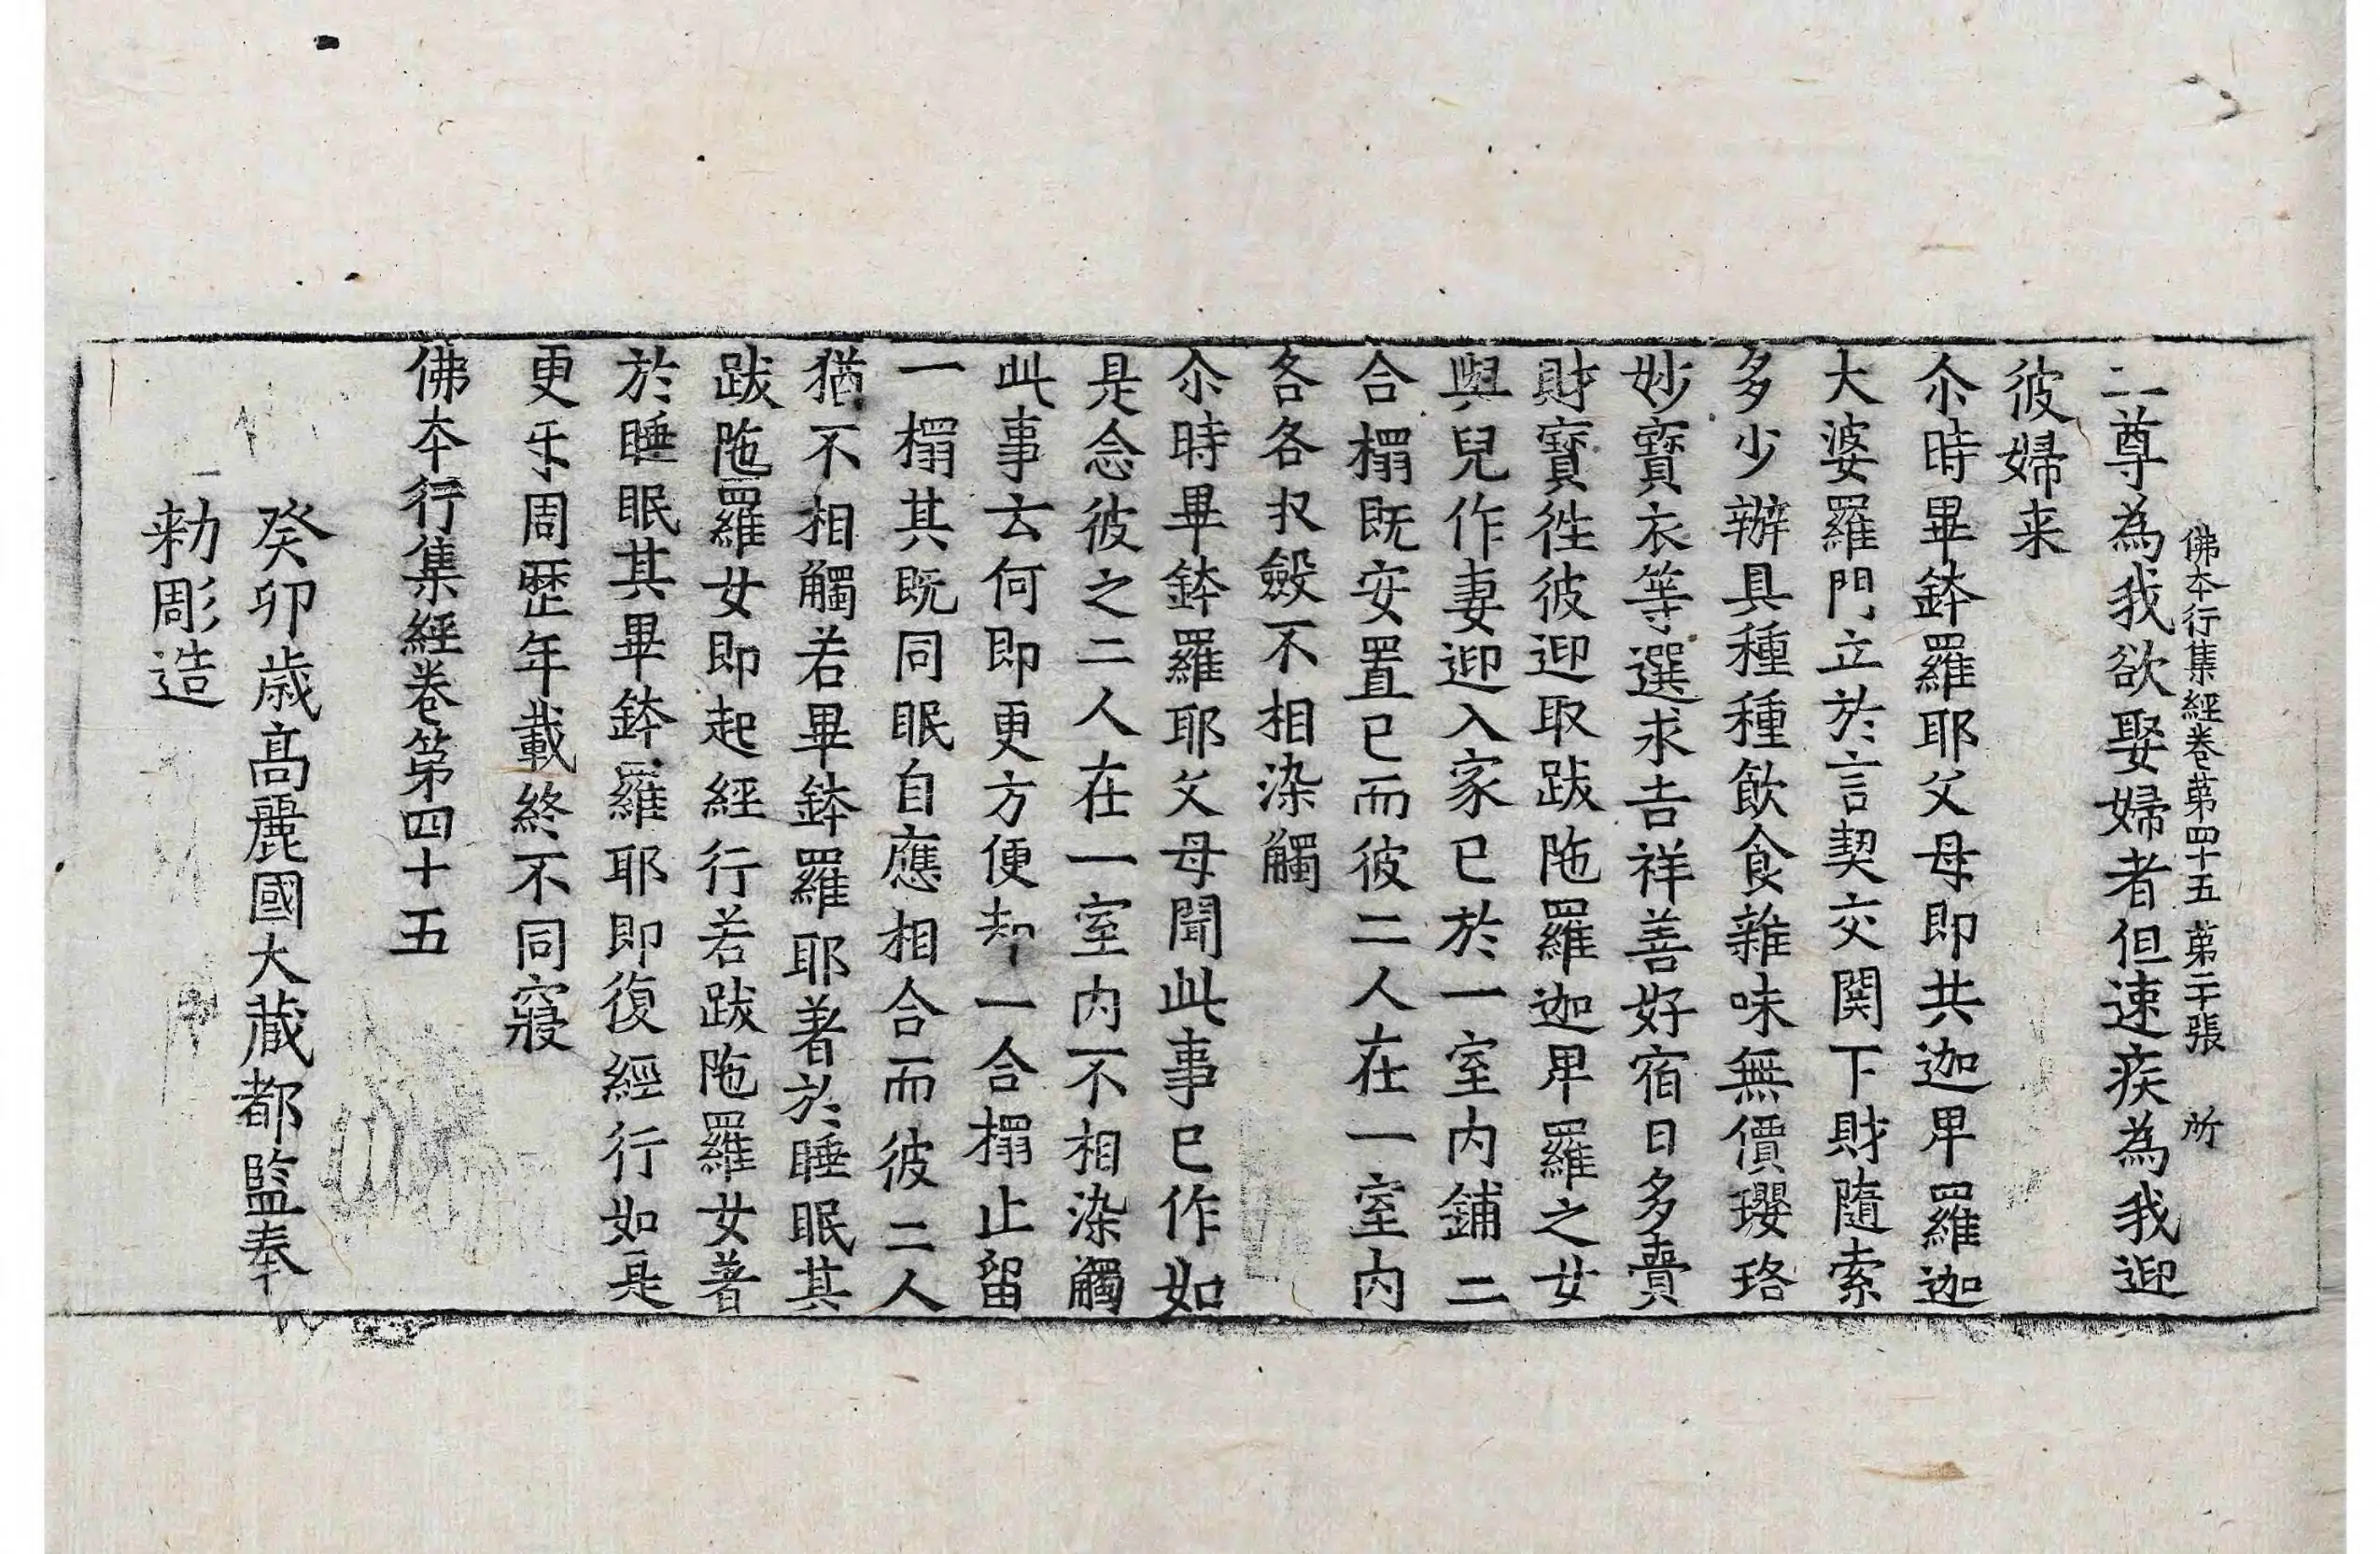 佛本行集經卷第四十五 第二十張 所
二尊為我欲娶婦者但速疾為我迎
彼婦来
尒時畢鉢羅耶父母即共迦卑羅迦
大婆羅門立於言契交関下財隨索
多少辦具種種飲食雜味無價瓔珞
妙寶衣等選求吉祥善好宿日多賷
財寶徃彼迎取跋陁羅迦卑羅之女
與兒作妻迎入家已於一室內鋪二
合榻既安置已而彼二人在一室內
各各収斂不相染觸
尒時畢鉢羅耶父母聞此事已作如
是念彼之二人在一室內不相染觸
此事云何即更方便却一合榻止留
一榻其既同眠自應相合而彼二人
猶不相觸若畢鉢羅耶著於睡眠其
跋陁羅女即起經行若跋陁羅女著
於睡眠其畢鉢羅耶即復經行如是
更㸦周歷年載終不同寢
佛本行集經卷第四十五
癸卯歲高麗國大藏都監奉
勑彫造